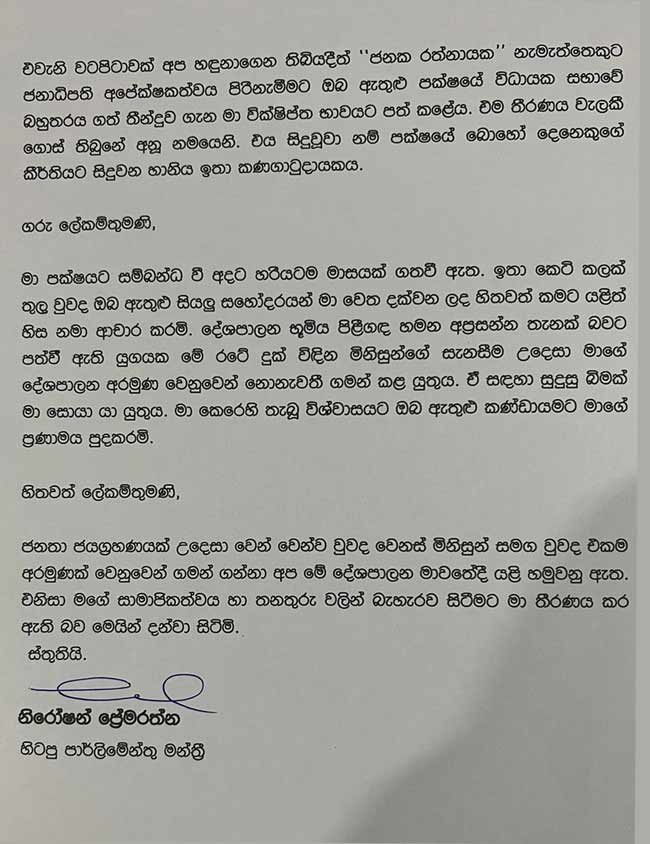 එවැනි වටපිටාවක් අප හඳුනාගෙන තිබියදීත් ''ජනක රත්නායක'' නැමැත්තෙකුට
ජනාධිපති අපේක්ෂකත්වය පිරිනැමීමට ඔබ ඇතුළු පක්ෂයේ විධායක සභාවේ
බහුතරය ගත් තීන්දුව ගැන මා වික්ෂිප්ත භාවයට පත් කළේය. එම තීරණය වැලකී
ගොස් තිබුනේ අනූ නමයෙනි. එය සිදුවූවා නම් පක්ෂයේ බොහෝ දෙනෙකුගේ
කීර්තියට සිදුවන හානිය ඉතා කණගාටුදායකය.
ගරු ලේකම්තුමණි,
මා පක්ෂයට සම්බන්ධ වී අදට හරියටම මාසයක් ගතවී ඇත. ඉතා කෙටි කලක්
තුල වුවද ඔබ ඇතුළු සියලු සහෝදරයන් මා වෙත දක්වන ලද හිතවත් කමට යළිත්
හිස නමා ආචාර කරමි. දේශපාලන භූමිය පිළීගඳ හමන අප්‍රසන්න තැනක් බවට
පත්වී ඇති යුගයක මේ රටේ දුක් විඳින මිනිසුන්ගේ සැනසීම උදෙසා මාගේ
දේශපාලන අරමුණ වෙනුවෙන් නොනැවතී ගමන් කළ යුතුය. ඒ සඳහා සුදුසු බිමක්
මා සොයා යා යුතුය. මා කෙරෙහි තැබූ විශ්වාසයට ඔබ ඇතුළු කණ්ඩායමට මාගේ
ප්‍රණාමය පුදකරමි.
හිතවත් ලේකම්තුමණි,
ජනතා ජයග්‍රහණයක් උදෙසා වෙන් වෙන්ව වුවද වෙනස් මිනිසුන් සමග වුවද එකම
අරමුණක් වෙනුවෙන් ගමන් ගන්නා අප මේ දේශපාලන මාවතේදී යළි හමුවනු ඇත.
එනිසා මගේ සාමාජිකත්වය හා තනතුරු වලින් බැහැරව සිටීමට මා තීරණය කර
ඇති බව මෙයින් දන්වා සිටිමි.
ස්තුතියි.
නිරෝෂන් ප්‍රේමරත්න
හිටපු පාර්ලිමේන්තු මන්ත්‍රී